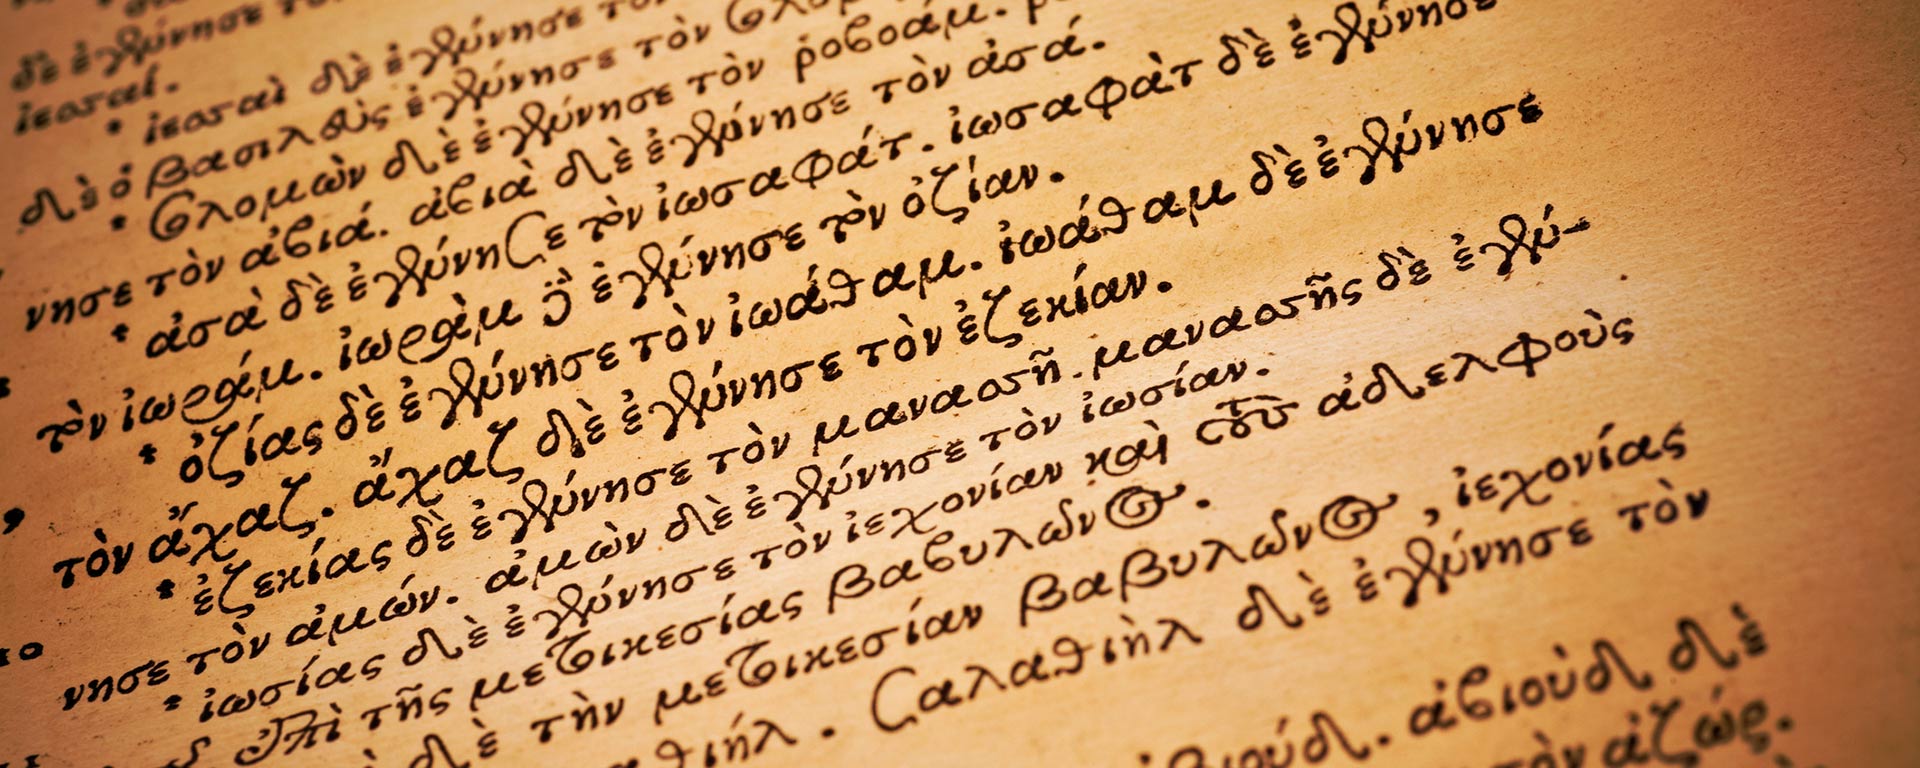 δὲ ἐγέννησε
ἰεσσαί.
* ἰεσσαὶ δὲ ἐγέννησε τὸν
δὲ ὁ βασιλεὺς ἐγέννησε τὸν
* σολομὼν δὲ ἐγέννησε τὸν ῥοβοάμ.
νησε τὸν ἀβιά. ἀβιὰ δὲ ἐγέννησε τὸν ἀσά.
* ἀσὰ δὲ ἐγέννησε τὸν ἰωσαφάτ. ἰωσαφὰτ δὲ ἐγέννησε
τὸν ἰωράμ. ἰωρὰμ δὲ ἐγέννησε τὸν ὀζίαν.
* ὀζίας δὲ ἐγέννησε τὸν ἰωάθαμ. ἰωάθαμ δὲ ἐγέννησε
τὸν ἄχαζ. ἄχαζ δὲ ἐγέννησε τὸν ἐζεκίαν.
* ἐζεκίας δὲ ἐγέννησε τὸν μανασσῆ. μανασσῆς δὲ ἐγέν-
10 νησε τὸν ἀμών. ἀμὼν δὲ ἐγέννησε τὸν ἰωσίαν.
* ἰωσίας δὲ ἐγέννησε τὸν ἰεχονίαν καὶ τοὺς ἀδελφοὺς
ἐπὶ τῆς μετοικεσίας βαβυλῶνος.
δὲ τὴν μετοικεσίαν βαβυλῶνος, ἰεχονίας
θιήλ. σαλαθιὴλ δὲ ἐγέννησε τὸν
βιούδ. ἀβιοὺδ δὲ
τὸν ἀζώρ.